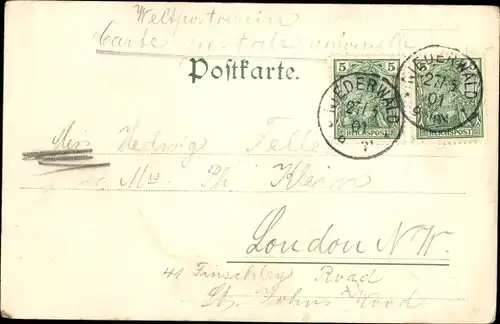 Weltpostverein
Carte postale universelle
Postkarte.
5 5
REICHSPOST
REICHSPOST
NIEDERWALD
27/5
01
NIEDERWALD
27/5
01
Miss Hedwig Feller
Mrs Ph. Klein
London N.W.
41 Finschley Road
St. Johns Wood